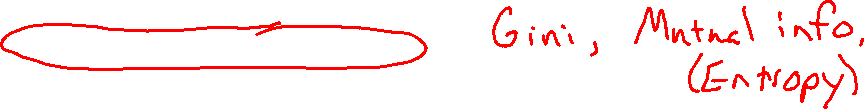 Gini, Mutual info,
(Entropy)